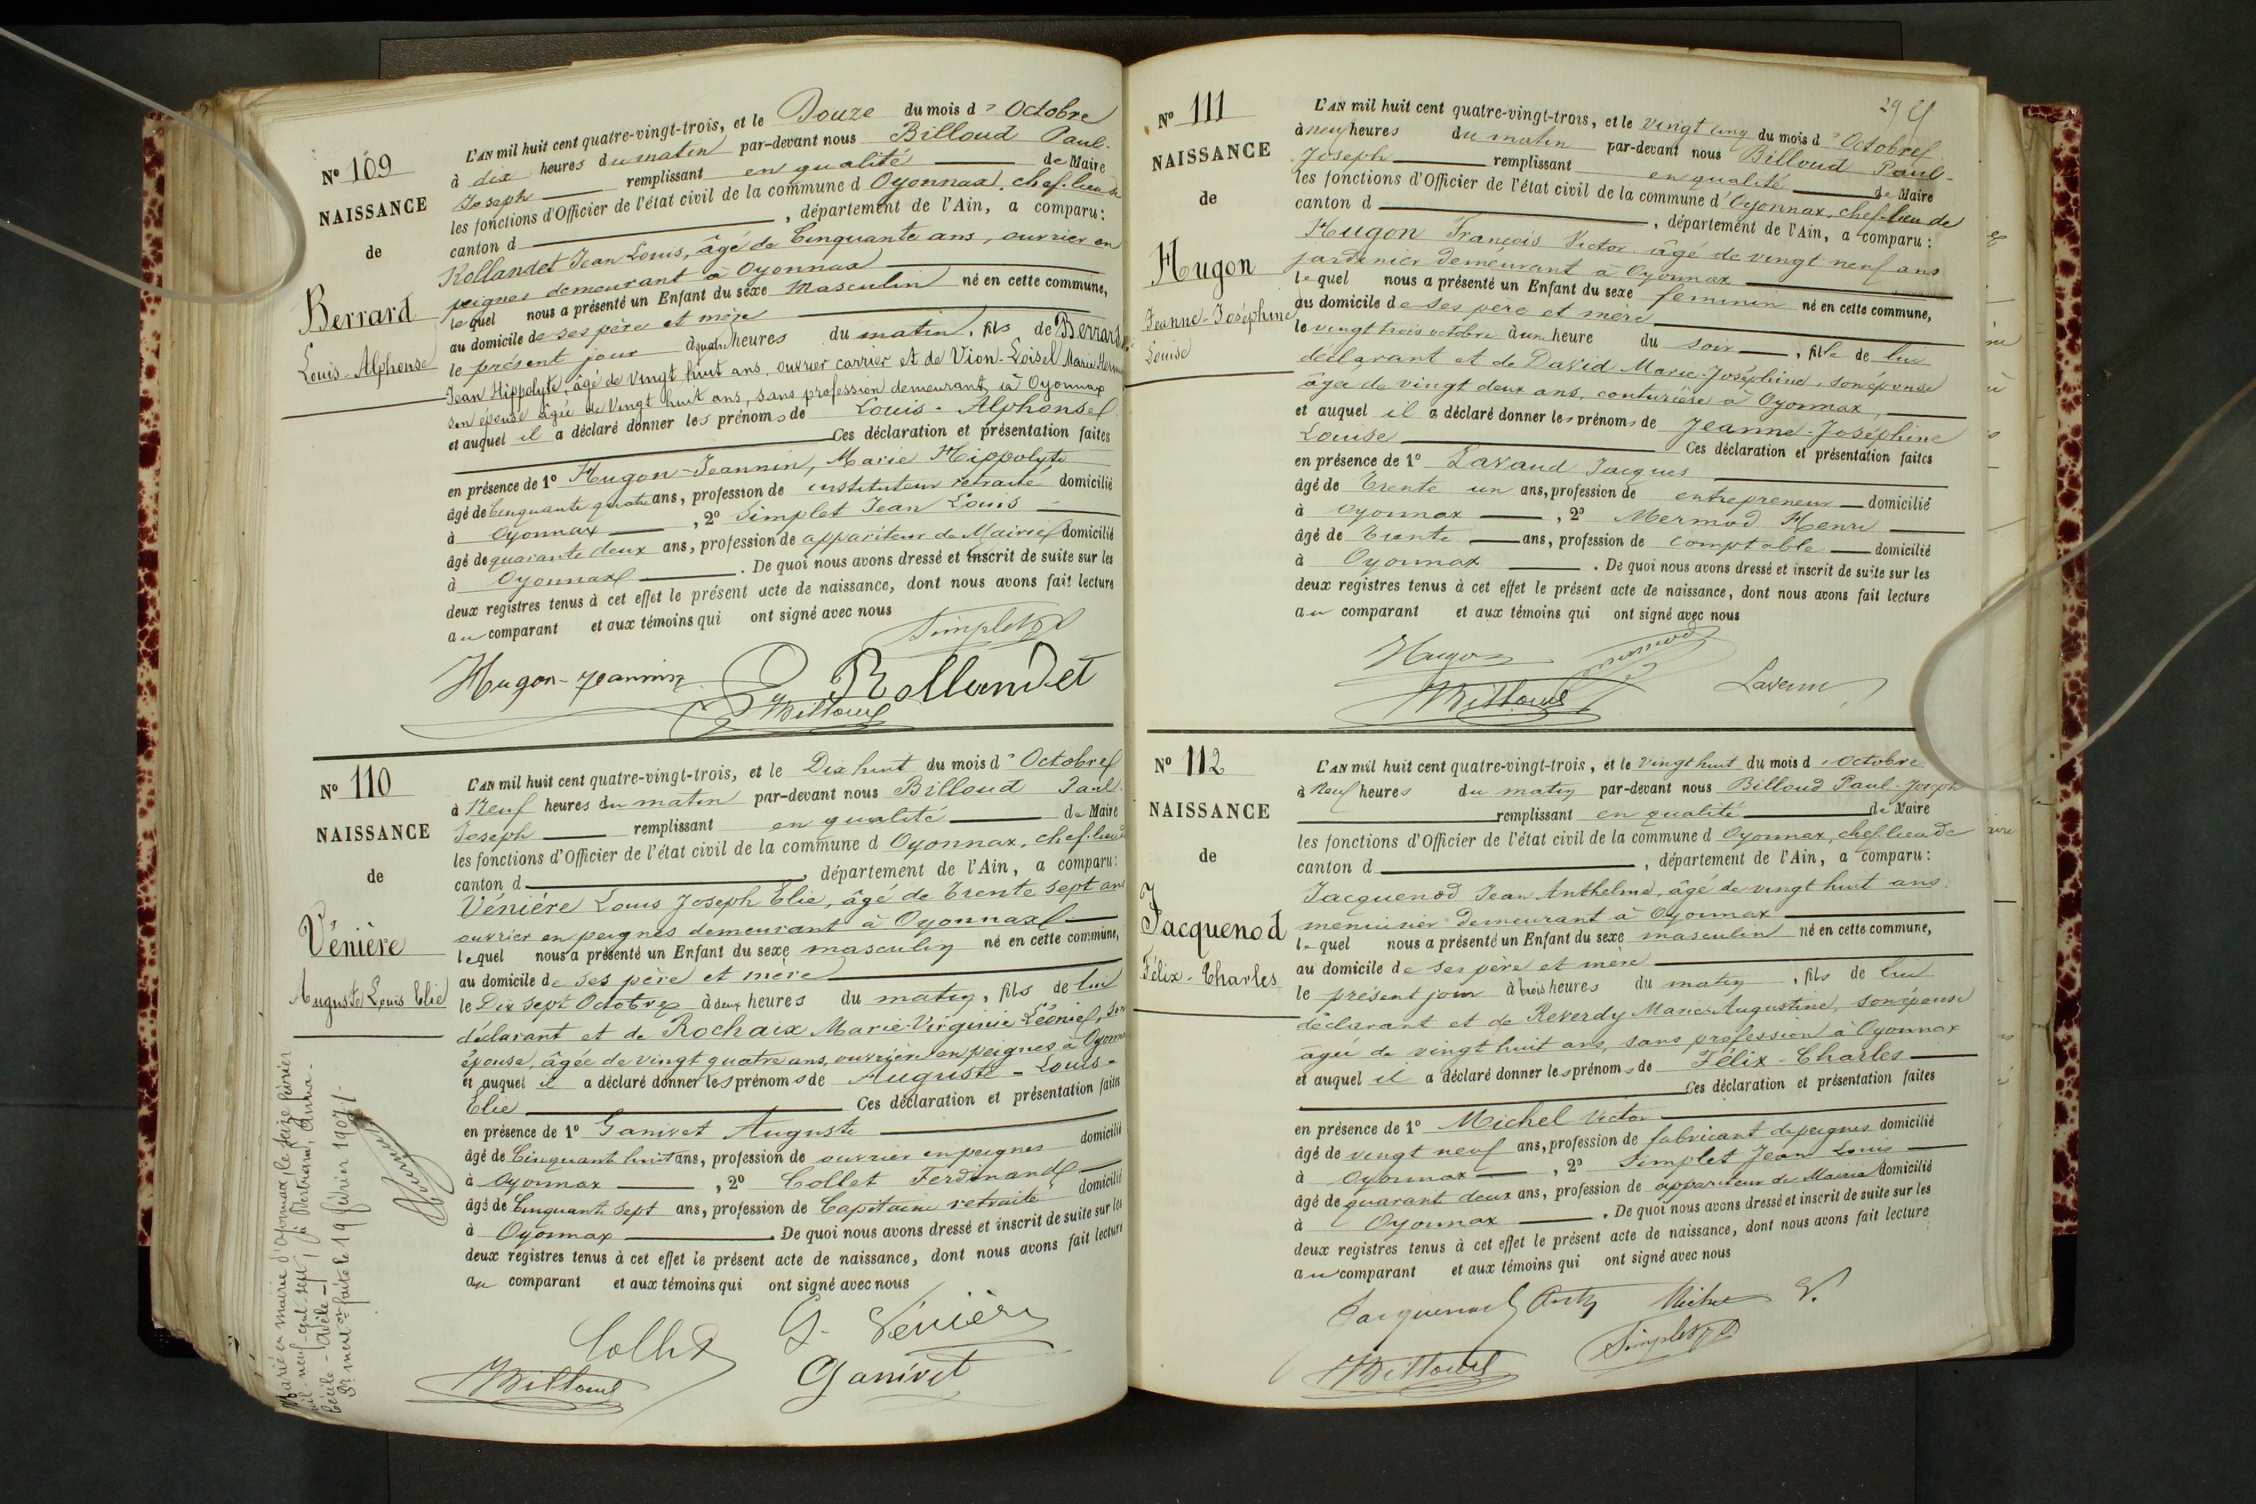 N° 109
NAISSANCE
de
Berrard
Louis-Alphonse
L'AN mil huit cent quatre-vingt-trois, et le Douze du mois d'Octobre
à dix heures du matin par-devant nous Billoud Paul-
Joseph remplissant en qualité de Maire
les fonctions d'Officier de l'état civil de la commune d'Oyonnax, chef-lieu de
canton d , département de l'Ain, a comparu:
Rollandet Jean Louis, âgé de Cinquante ans, ouvrier en
peignes demeurant à Oyonnax
lequel nous a présenté un Enfant du sexe Masculin né en cette commune,
au domicile de ses père et mère
le présent jour à quatre heures du matin, fils de Berrard
Jean Hippolyte, âgé de vingt huit ans, ouvrier carrier et de Vion-Loisel Marie
son épouse âgée de Vingt huit ans, sans profession demeurant à Oyonnax
et auquel il a déclaré donner les prénoms de Louis-Alphonse
Ces déclaration et présentation faites
en présence de 1° Hugon-Jeannin, Marie Hippolyte
âgé de Cinquante quatre ans, profession de instituteur retraité domicilié
à Oyonnax , 2° Simplet Jean Louis
âgé de quarante deux ans, profession de appariteur de Mairie domicilié
à Oyonnax . De quoi nous avons dressé et inscrit de suite sur les
deux registres tenus à cet effet le présent acte de naissance, dont nous avons fait lecture
au comparant et aux témoins qui ont signé avec nous
Simplet
Hugon-Jeannin Rollandet
Billoud
N° 110
NAISSANCE
de
Vénière
Auguste Louis Elie
L'AN mil huit cent quatre-vingt-trois, et le Dix huit du mois d'Octobre
à Neuf heures du matin par-devant nous Billoud Paul-
Joseph remplissant en qualité de Maire
les fonctions d'Officier de l'état civil de la commune d Oyonnax, chef-lieu d
canton d , département de l'Ain, a comparu:
Vénière Louis Joseph Elie, âgé de Trente sept ans
ouvrier en peignes demeurant à Oyonnax
lequel nous a présenté un Enfant du sexe masculin né en cette commune,
au domicile de ses père et mère
le Dix sept Octobre à deux heures du matin, fils de lui
déclarant et de Rochaix Marie-Virginie Léonie, son
épouse, âgée de vingt quatre ans, ouvrière en peignes à Oyonnax
et auquel il a déclaré donner les prénoms de Auguste-Louis-
Elie Ces déclaration et présentation faites
en présence de 1° Ganivet Auguste
âgé de Cinquante huit ans, profession de ouvrier en peignes domicilié
à Oyonnax , 2° Collet Ferdinand
âgé de Cinquante sept ans, profession de Capitaine retraité domicilié
à Oyonnax . De quoi nous avons dressé et inscrit de suite sur les
deux registres tenus à cet effet le présent acte de naissance, dont nous avons fait lecture
au comparant et aux témoins qui ont signé avec nous
Collet G. Vénière
Billoud Ganivet
Marié en mairie d'Oyonnax, le seize février
mil-neuf-cent-sept, à Bertrand, Anna-
Cécile-Adèle-
Pr ment on faite le 19 février 1907
29
N° 111
NAISSANCE
de
Hugon
Jeanne-Joséphine
Louise
L'AN mil huit cent quatre-vingt-trois, et le vingt cinq du mois d'Octobre
à neuf heures du matin par-devant nous Billoud Paul-
Joseph remplissant en qualité de Maire
les fonctions d'Officier de l'état civil de la commune d'Oyonnax, chef-lieu de
canton d , département de l'Ain, a comparu:
Hugon François Victor âgé de vingt neuf ans
jardinier demeurant à Oyonnax
lequel nous a présenté un Enfant du sexe féminin né en cette commune,
au domicile de ses père et mère
le vingt trois octobre à une heure du soir , fille de lui
déclarant et de David Marie-Joséphine, son épouse
âgée de vingt deux ans, couturière à Oyonnax,
et auquel il a déclaré donner les prénoms de Jeanne-Joséphine
Louise Ces déclaration et présentation faites
en présence de 1° Lavaud Jacques
âgé de Trente un ans, profession de entrepreneur domicilié
à Oyonnax , 2° Mermod Henri
âgé de Trente ans, profession de comptable domicilié
à Oyonnax . De quoi nous avons dressé et inscrit de suite sur les
deux registres tenus à cet effet le présent acte de naissance, dont nous avons fait lecture
au comparant et aux témoins qui ont signé avec nous
Hugon Mermod
Billoud
N° 112
NAISSANCE
de
Jacquenod
Félix-Charles
L'AN mil huit cent quatre-vingt-trois, et le vingt huit du mois d'Octobre
à Neuf heures du matin par-devant nous Billoud Paul-Joseph
remplissant en qualité de Maire
les fonctions d'Officier de l'état civil de la commune d Oyonnax, chef-lieu de
canton d , département de l'Ain, a comparu:
Jacquenod Jean Anthelme, âgé de vingt huit ans
menuisier demeurant à Oyonnax
lequel nous a présenté un Enfant du sexe masculin né en cette commune,
au domicile de ses père et mère
le présent jour à trois heures du matin , fils de lui
déclarant et de Reverdy Marie-Augustine, son épouse
âgée de vingt huit ans, sans profession à Oyonnax
et auquel il a déclaré donner les prénoms de Félix-Charles
Ces déclaration et présentation faites
en présence de 1° Michel Victor
âgé de vingt neuf ans, profession de fabricant de peignes domicilié
à Oyonnax , 2° Simplet Jean Louis
âgé de quarant deux ans, profession de appariteur de Mairie domicilié
à Oyonnax . De quoi nous avons dressé et inscrit de suite sur les
deux registres tenus à cet effet le présent acte de naissance, dont nous avons fait lecture
au comparant et aux témoins qui ont signé avec nous
Jacquenod Anth Michel V.
Billoud Simplet